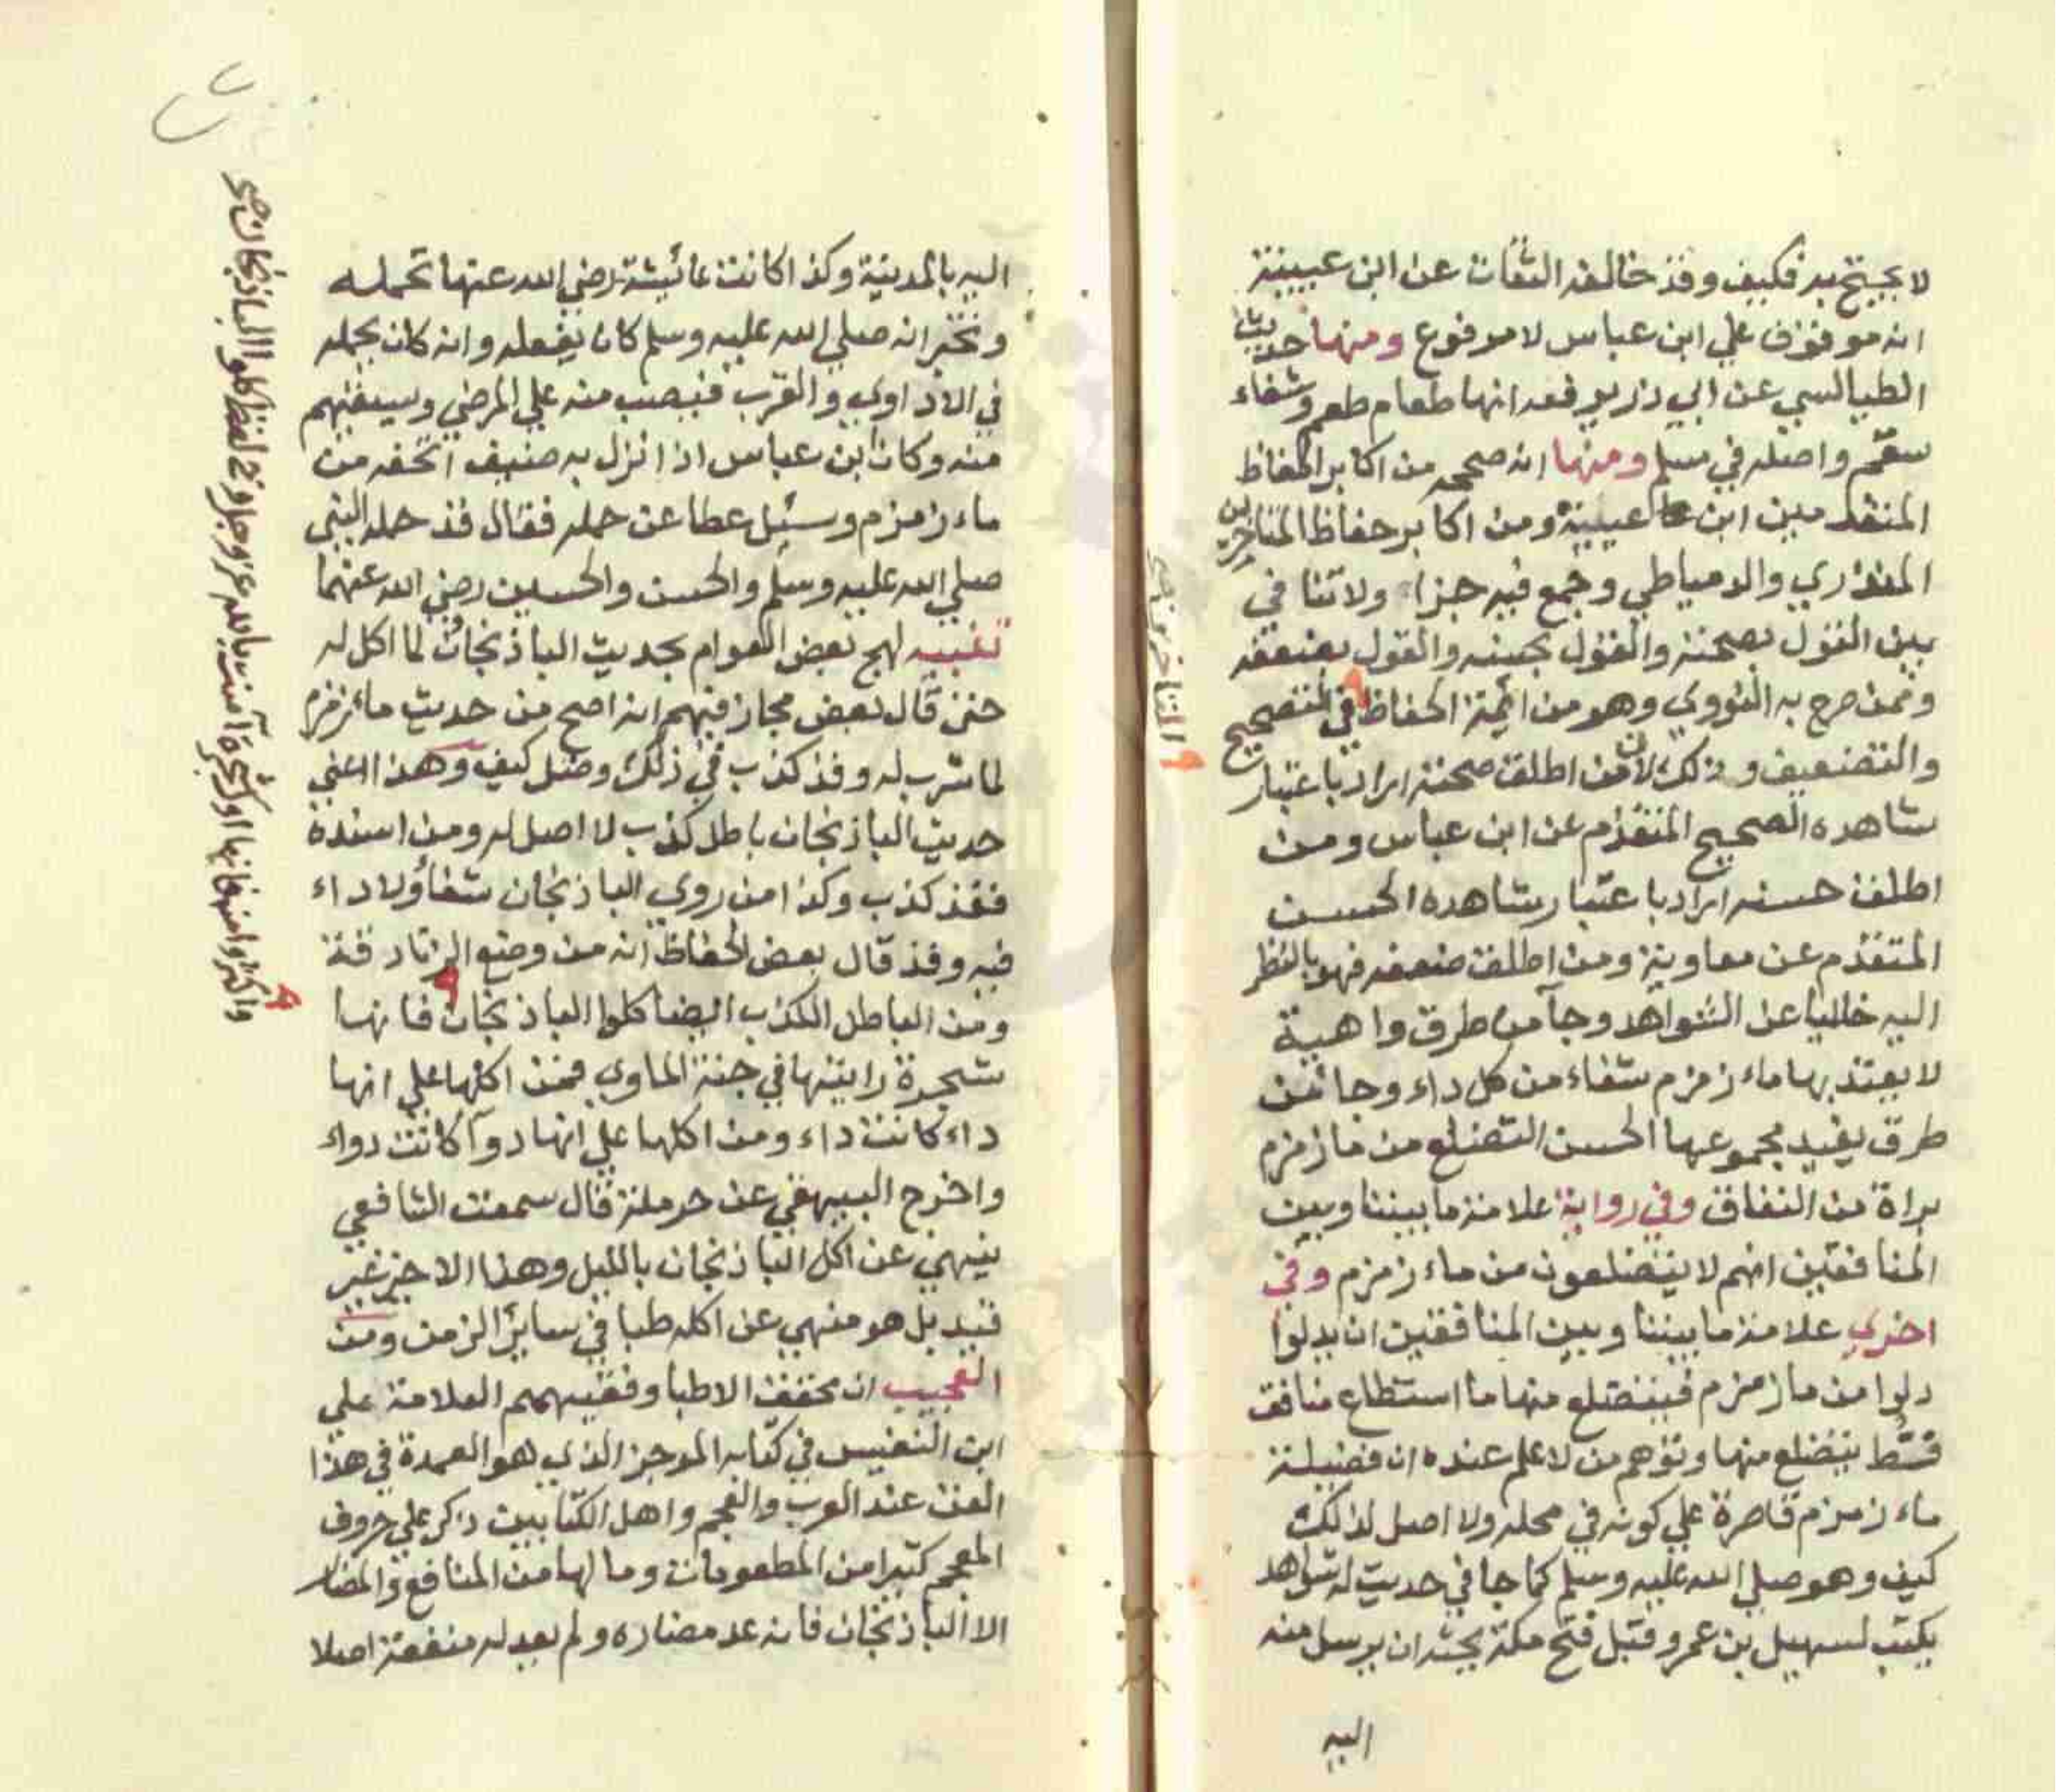 لا يحتج به فكيف وقد خالفه الثقات عن ابن عيينة
انه موقوف علي ابن عباس لا مرفوع ومنها حديث
الطيالسي عن ابي ذر يرفعه انها طعام طعم وشفاء
سقم واصله في مسلم ومنها انه صححه من اكابر الحفاظ
المتقدمين ابن عيينة ومن اكابر حفاظ المتاخرين
المنذري والدمياطي وجمع فيه جزا ولا تنافي
بين القول بصحته والقول بحسنه والقول بضعفه
وممن صرح به النووي وهو من ائمة الحفاظ في التصحيح
والتضعيف وذلك لان من اطلق صحته اراد باعتبار
شاهده الصحيح المتقدم عن ابن عباس ومن
اطلق حسنه اراد باعتبار شاهده الحسن
المتقدم عن معاوية ومن اطلق ضعفه فهو بالنظر
اليه خاليا عن الشواهد وجآ من طرق واهية
لا يعتد بها ماء زمزم شفاء من كل داء وجا من
طرق يفيد مجموعها الحسن التضلع من ما زمزم
براة من النفاق وفي رواية علامة ما بيننا وبين
المنافقين انهم لا يتضلعون من ماء زمزم وفي
اخري علامة ما بيننا وبين المنافقين ان يدلوا
دلوا من ما زمزم فيتضلع منها ما استطاع منافق
قط يتضلع منها وتوهم من لا علم عنده ان فضيلة
ماء زمزم قاصرة علي كونه في محله ولا اصل لذلك
كيف وهو صلي الله عليه وسلم كما جا في حديث له شواهد
يكتب لسهيل بن عمرو قبل فتح مكة يحثه ان يرسل منه
اليه
المتاخرين صح
اليه بالمدينة وكذا كانت عائيشة رضي الله عنها تحمله
وتخبر انه صلي الله عليه وسلم كان يفعله وانه كان يحمله
في الاداوي والقرب فيصب منه علي المرضي ويسقيهم
منه وكان ابن عباس اذا نزل به ضيف اتحفه من
ماء زمزم وسئل عطا عن حمله فقال قد حمله النبي
صلي الله عليه وسلم والحسن والحسين رضي الله عنهما
تنبيه لهج بعض العوام بحديث الباذنجان لما اكل له
حتي قال بعض مجازفيهم انه اصح من حديث ماء زمزم
لما شرب له وقد كذب في ذلك وضل كيف وهذا اعني
حديث الباذنجان باطل كذب لا اصل له ومن اسنده
فقد كذب وكذا من روي الباذنجان شفاؤلا داء
فيه وقد قال بعض الحفاظ انه من وضع الزنادقة
ومن الباطل الكذب ايضا كلوا الباذنجان فانها
شجرة رايتها في جنة الماوي فمن اكلها علي انها
داء كانت داء ومن اكلها علي انها دوآ كانت دواء
واخرج البيهقي عن حرملة قال سمعت الشافعي
ينهي عن اكل الباذنجان بالليل وهذا الاخير غير
قيد بل هو منهي عن اكله طبا في سائر الزمن ومن
العجيب ان محقق الاطبا وفقيههم العلامة علي
ابن النفيس في كتابه الموجز الذي هو العمدة في هذا
الفن عند العرب والعجم واهل الكتابين ذكر علي حروف
المعجم كثيرا من المطعومات وما لها من المنافع والمضار
الا الباذنجان فانه عد مضاره ولم يعد له منفعة اصلا
واكثروا منها فانها اول شجرة آمنت بالله عز وجل وفي لفظ كلوا الباذنجان صح